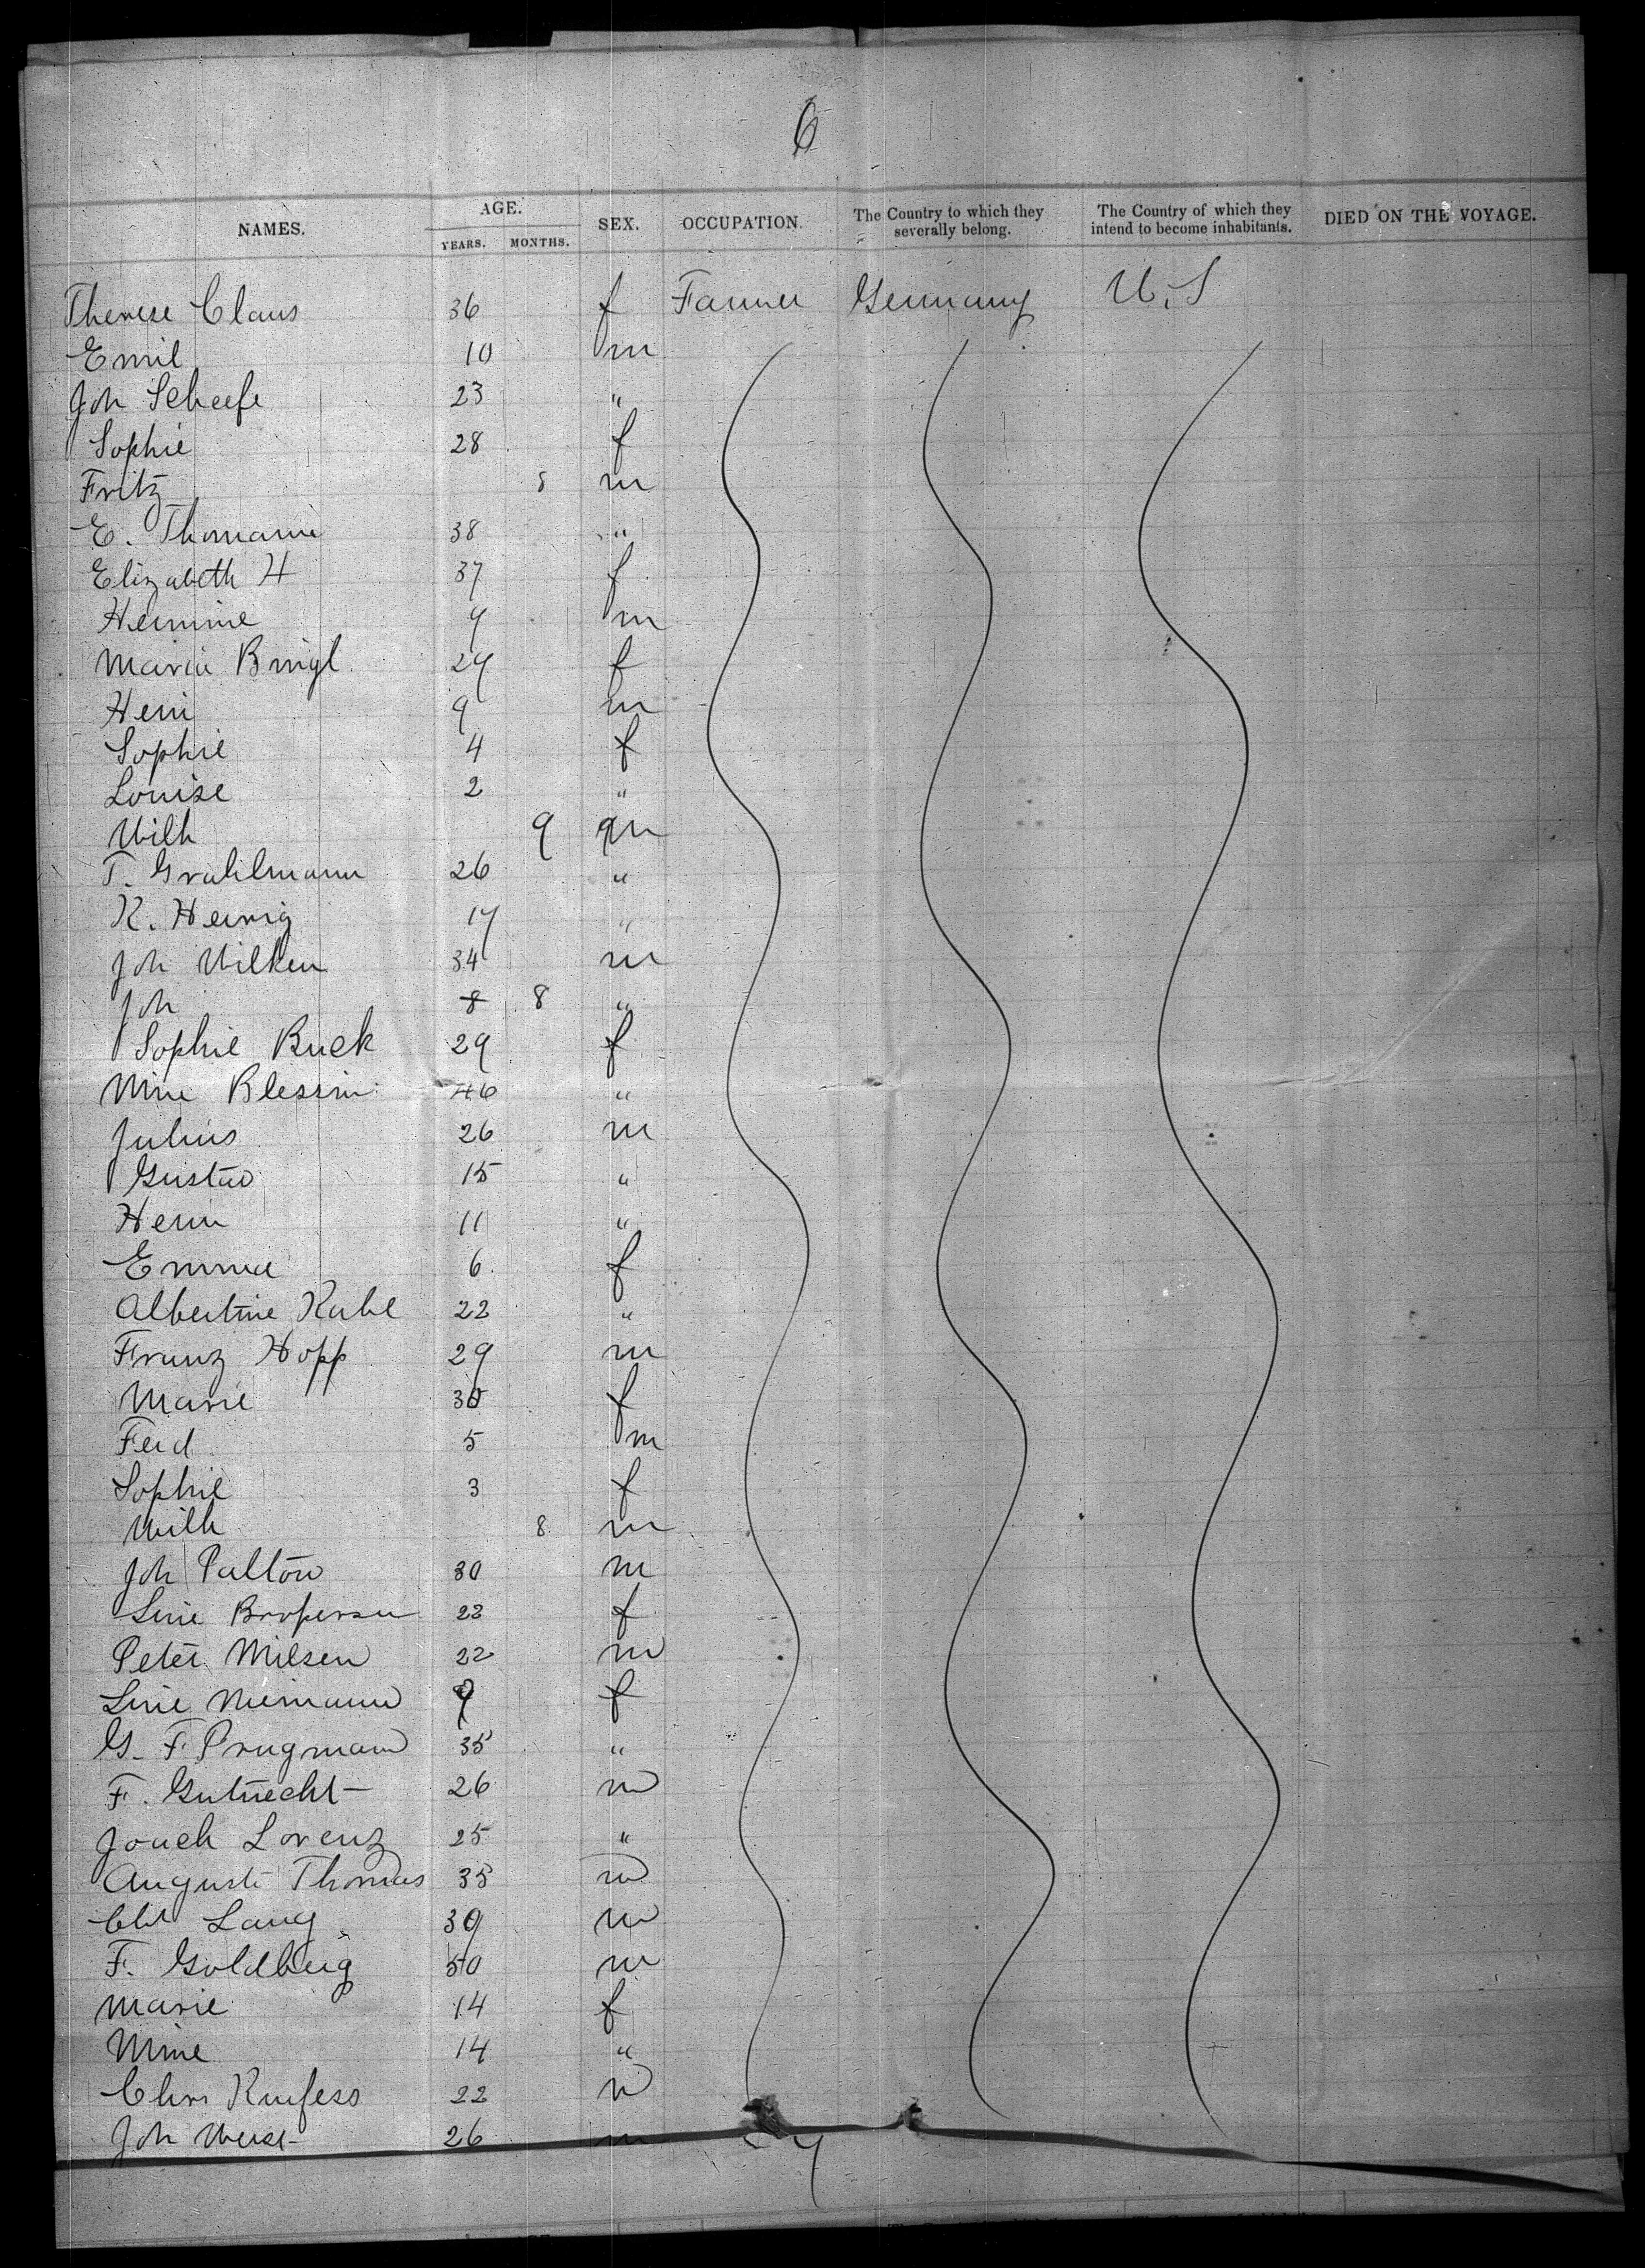 6
NAMES. AGE. SEX. OCCUPATION. The Country to which they severally belong. The Country of which they intend to become inhabitants. DIED ON THE VOYAGE.
YEARS. MONTHS.
Therese Claus 36 f Farmer Germany U.S
Emil 10 m
Joh Scheefe 23 "
Sophie 28 f
Fritz 8 m
E. Thomann 38 "
Elizabeth H 37 f
Hermine 9 m
Maria 29 f
Herm 9 m
Sophie 4 f
Louise 2 "
Wilh 9 m
T. Grahlmann 26 "
K. Herwig 17 "
Joh Wilken 34 m
Joh 8 8 "
Sophie Buck 29 f
Mine Blessin 46 "
Julius 26 m
Gustav 15 "
Herm 11 "
Emma 6 f
Albertine Kahl 22 "
Franz Hopp 29 m
Marie 30 f
Ferd 5 m
Sophie 3 f
Wilh 8 m
Joh Paltow 30 m
Line 22 f
Peter Nilsen 22 m
Line Niemann 9 f
G. F. Prugmann 35 "
F. Gutnecht 26 m
Joach Lorenz 25 "
Auguste Thomas 35 m
Chr Lang 39 m
F. Goldberg 50 m
Marie 14 f
Mine 14 "
Chr 22 m
Joh Weise 26 m